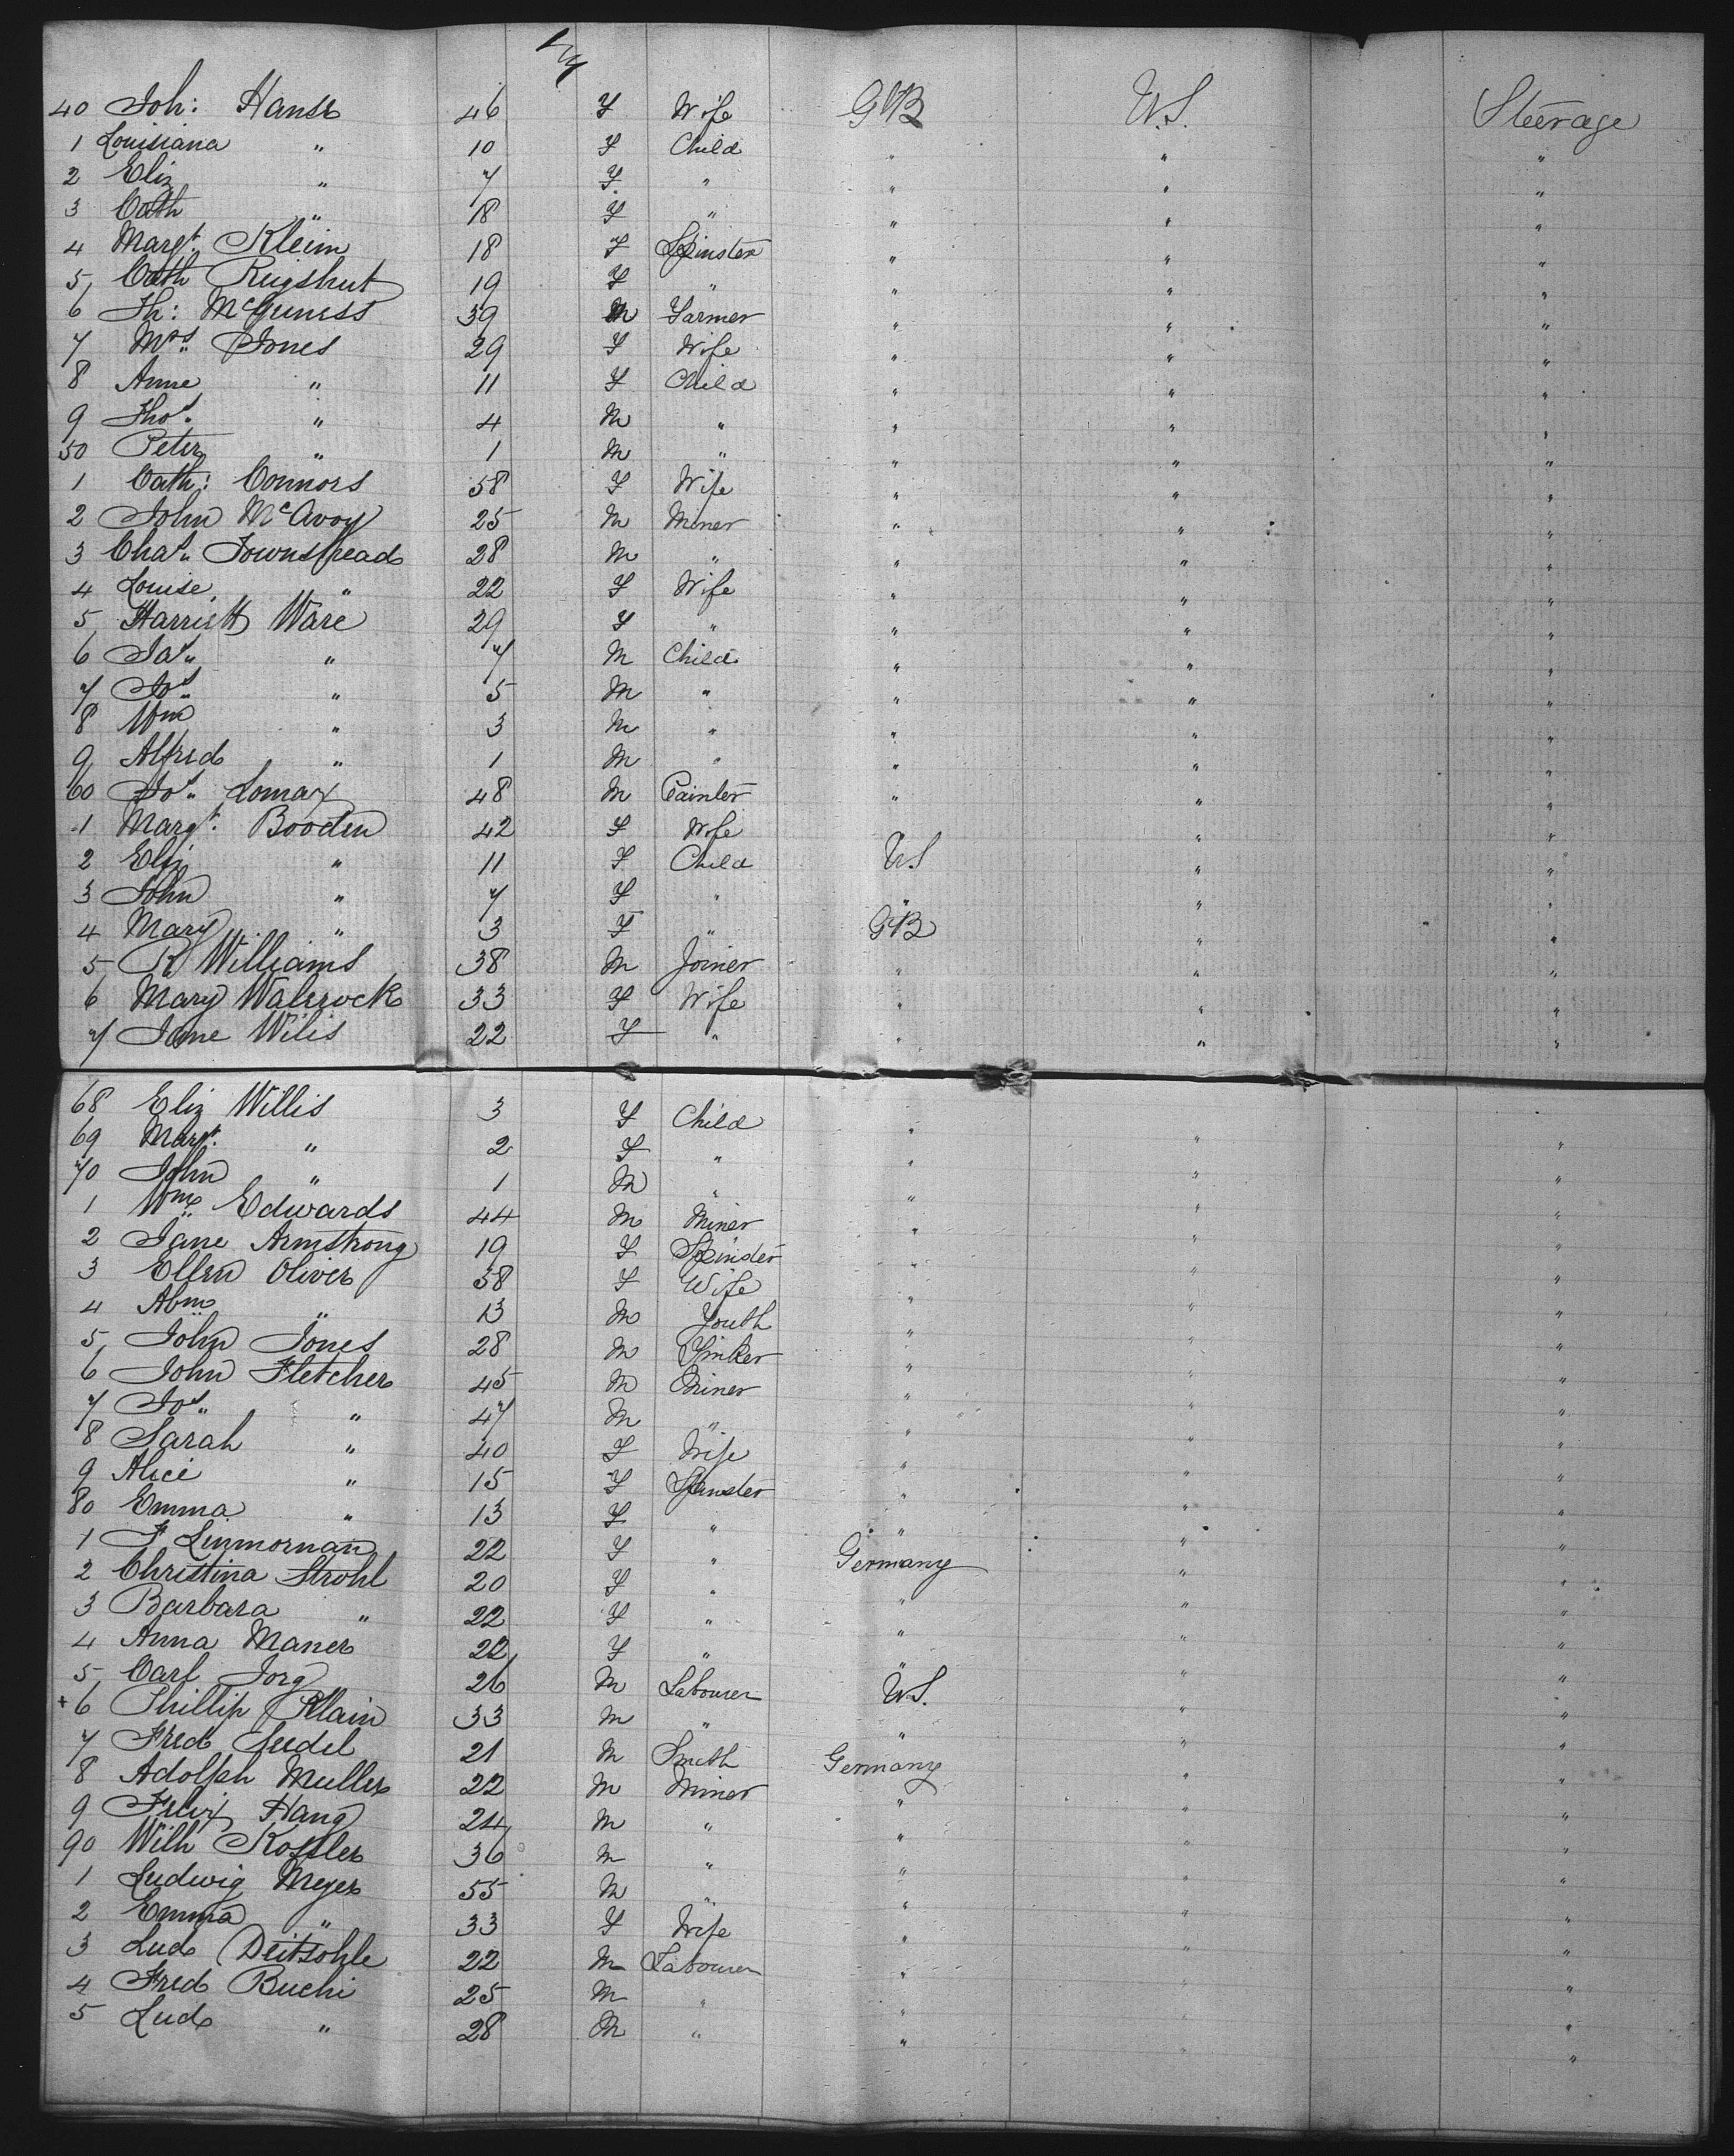 40 Joh: Hanse 46 F Wife GB U.S. Steerage
1 Louisiana " 10 F Child " " "
2 Eliz " 7 F. " " " "
3 Cath " 18 F " " " "
4 Margt. Kleim 18 F Spinster " " "
5 Cath 19 F " " " "
6 Th: McGuness 39 M Farmer " " "
7 Mrs. Jones 29 F Wife " " "
8 Anne " 11 F Child " " "
9 Thos. " 4 M " " " "
50 Peter " 1 M " " " "
1 Cath: Connors 58 F Wife " " "
2 John McAvoy 25 M Miner " " "
3 Chas. Townshead 28 M " " " "
4 Louise, " 22 F Wife " " "
5 Harriett Ware 29 F " " " "
6 Jas. " 7 M Child " " "
7 Jos. " 5 M " " " "
8 Wm " 3 M " " " "
9 Alfred " 1 M " " " "
60 Jos. Lomax 48 M Painter " " "
1 Margt. Booden 42 F Wife " "
2 Eliz " 11 F Child US " "
3 John " 7 F " " " "
4 Mary " 3 F " GB " "
5 R Williams 38 M Joiner " " "
6 Mary 33 F Wife " " "
7 Jane Wilis 22 F " " " "
68 Eliz Willis 3 F Child " " "
69 Margt. " 2 F " " " "
70 John " 1 M " " " "
1 Wm Edwards 44 M Miner " " "
2 Jane Armstrong 19 F Spinster " " "
3 Ellen Oliver 58 F Wife " " "
4 Abm " 13 M Youth " " "
5 John Jones 28 M " " "
6 John Fletcher 45 M Miner " " "
7 Jos. " 47 M " " " "
8 Sarah " 40 F Wife " " "
9 Alice " 15 F Spinster " " "
80 Emma " 13 F " " " "
1 F Linmornan 22 F " Germany " "
2 Christina Strohl 20 F " " "
3 Barbara " 22 F " " " "
4 Anna Maner 22 F " " " "
5 Carl Jorg 26 M Labourer US. " "
+ 6 Phillip Klain 33 M " " " "
7 Fred Seedel 21 M Smith Germany " "
8 Adolph Muller 22 M Miner " " "
9 Felix Hang 24 M " " " "
90 Wilh Kossler 36 M " " " "
1 Ludwig Meyer 55 M " " " "
2 Emma " 33 F Wife " " "
3 Lud Deitsohle 22 M Labourer " " "
4 Fred Buchi 25 M " " " "
5 Lud " 28 M " " " "